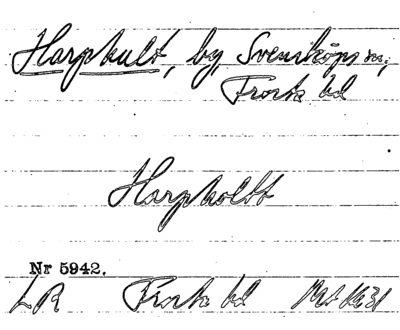 Harphult, by, Svensköps sn;
Frosta hd
Harpholtt
Nr 5942.
LR Frosta hd 1624-1631